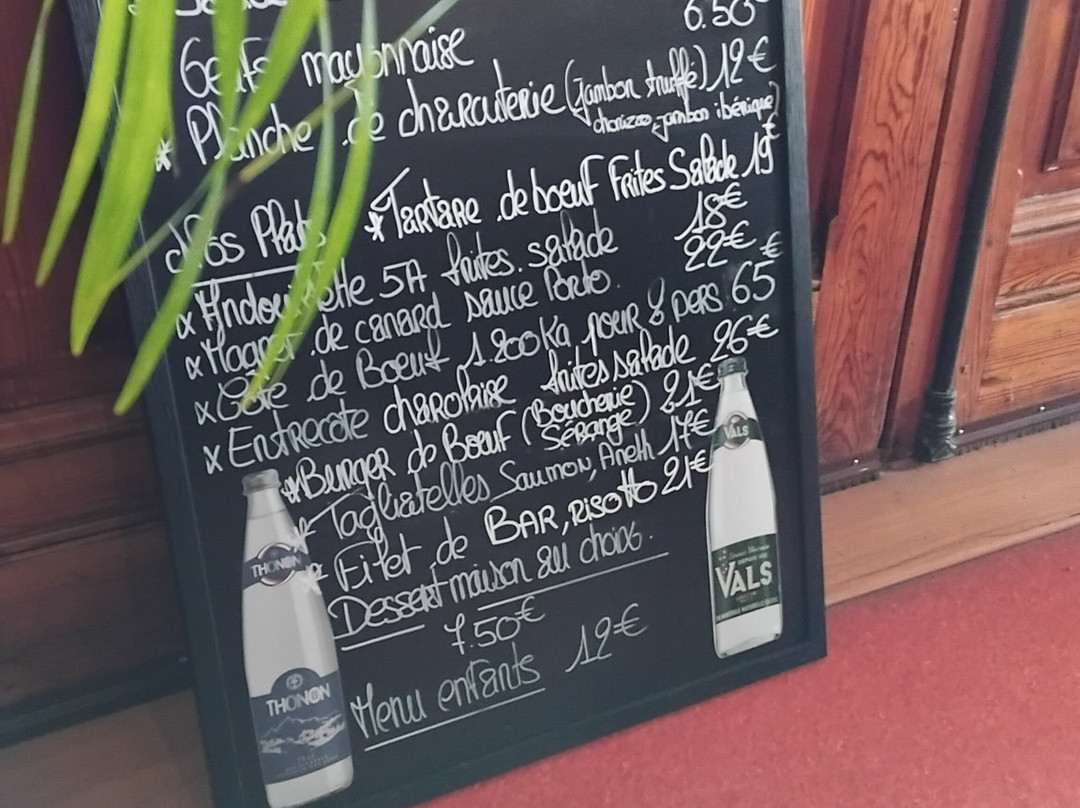 6.50€
Oeufs mayonnaise
Planche de charcuterie (Jambon truffé) 12€
chorizo, jambon ibérique)
Nos Plats * Tartare de boeuf Frites Salade 19€
* Andouillette 5A frites. salade 18€
* Magret de canard sauce Porto. 22€
* Côte de Boeuf 1.200Kg pour 2 pers 65€
* Entrecôte charolaise frites salade 26€
* Burger de Boeuf (Boucherie Sérange) 21€
* Tagliatelles Saumon, Aneth 17€
* Filet de BAR, RISOTTO 21€
Dessert maison au choix.
7.50€
Menu enfants 12€
THONON
THONON
VALS
VALS